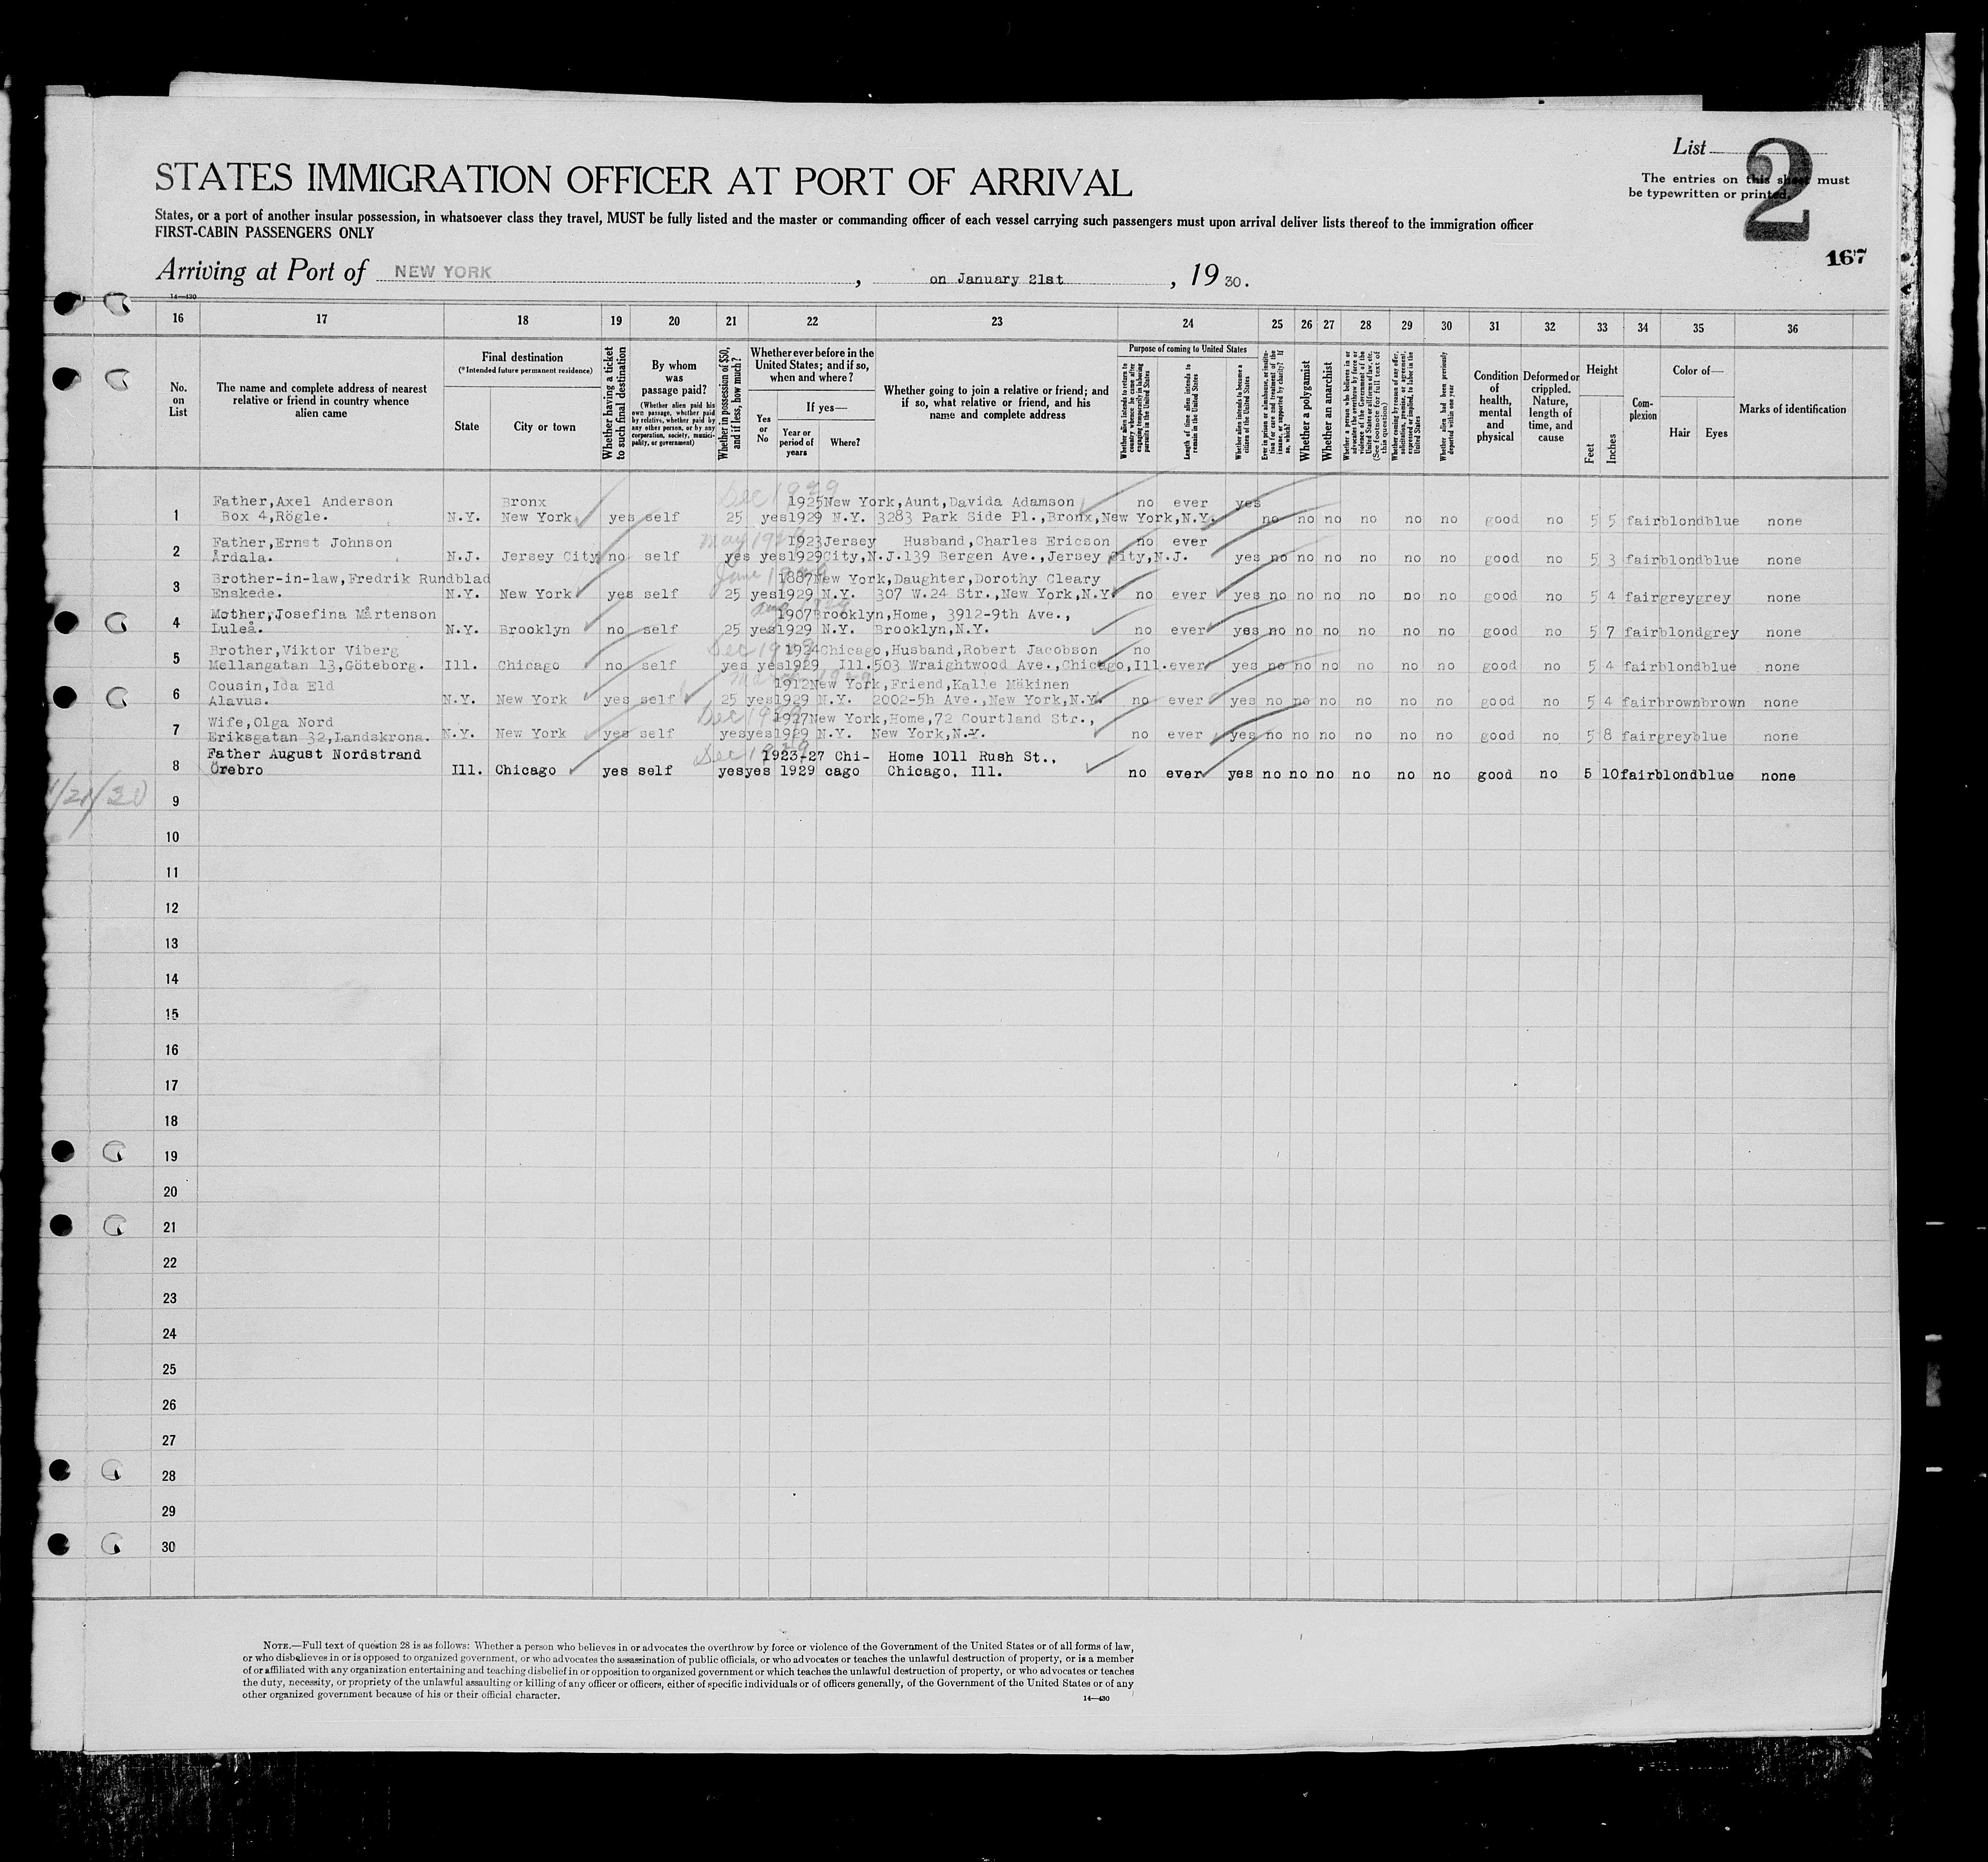 List 2
The entries on this sheet must
be typewritten or printed.
167
STATES IMMIGRATION OFFICER AT PORT OF ARRIVAL
States, or a port of another insular possession, in whatsoever class they travel, MUST be fully listed and the master or commanding officer of each vessel carrying such passengers must upon arrival deliver lists thereof to the immigration officer
FIRST-CABIN PASSENGERS ONLY
Arriving at Port of NEW YORK, on January 21st, 19 30.
14—430
16 17 18 19 20 21 22 23 24 25 26 27 28 29 30 31 32 33 34 35 36
No. on List
The name and complete address of nearest relative or friend in country whence alien came
Final destination
(*Intended future permanent residence)
State
City or town
Whether having a ticket to such final destination
By whom was passage paid?
(Whether alien paid his own passage, whether paid by relative, whether paid by any other person, or by any corporation, society, municipality, or government)
Whether in possession of $50, and if less, how much?
Whether ever before in the United States; and if so, when and where?
Yes or No
If yes—
Year or period of years
Where?
Whether going to join a relative or friend; and if so, what relative or friend, and his name and complete address
Purpose of coming to United States
Whether alien intends to return to country whence he came after engaging temporarily in laboring pursuits in the United States
Length of time alien intends to remain in the United States
Whether alien intends to become a citizen of the United States
Ever in prison or almshouse, or institution for care and treatment of the insane, or supported by charity? If so, which?
Whether a polygamist
Whether an anarchist
Whether a person who believes in or advocates the overthrow by force or violence of the Government of the United States or all forms of law, etc. (See footnote for full text of this question)
Whether coming by reason of any offer, solicitation, promise, or agreement, expressed or implied, to labor in the United States
Whether alien had been previously deported within one year
Condition of health, mental and physical
Deformed or crippled. Nature, length of time, and cause
Height
Feet
Inches
Complexion
Color of—
Hair
Eyes
Marks of identification
Dec 1929
Father,Axel Anderson Bronx 1925 New York,Aunt,Davida Adamson no ever yes
1 Box 4,Rögle. N.Y. New York yes self 25 yes 1929 N.Y. 3283 Park Side Pl.,Bronx,New York,N.Y. no no no no no no good no 5 5 fair blond blue none
Father,Ernst Johnson May 1923 Jersey Husband,Charles Ericson no ever
2 Årdala. N.J. Jersey City no self yes yes 1929 City,N.J. 139 Bergen Ave.,Jersey City,N.J. yes no no no no no no good no 5 3 fair blond blue none
Brother-in-law,Fredrik Rundblad June 1887 New York,Daughter,Dorothy Cleary
3 Enskede. N.Y. New York yes self 25 yes 1929 N.Y. 307 W.24 Str.,New York,N.Y. no ever yes no no no no no no good no 5 4 fair grey grey none
Mother,Josefina Mårtenson 1907 Brooklyn,Home, 3912-9th Ave.,
4 Luleå. N.Y. Brooklyn no self 25 yes 1929 N.Y. Brooklyn,N.Y. no ever yes no no no no no no good no 5 7 fair blond grey none
Brother,Viktor Viberg Dec 1924 Chicago,Husband,Robert Jacobson no
5 Mellangatan 13,Göteborg. Ill. Chicago no self yes yes 1929 Ill. 503 Wraightwood Ave.,Chicago,Ill. ever yes no no no no no no good no 5 4 fair blond blue none
March 1929
Cousin,Ida Eld 1912 New York,Friend,Kalle Mäkinen
6 Alavus. N.Y. New York yes self 25 yes 1929 N.Y. 2002-5h Ave.,New York,N.Y. no ever yes no no no no no no good no 5 4 fair brown brown none
Wife,Olga Nord Dec 1927 New York,Home,72 Courtland Str.,
7 Eriksgatan 32,Landskrona. N.Y. New York yes self yes yes 1929 N.Y. New York,N.Y. no ever yes no no no no no no good no 5 8 fair grey blue none
Dec 1929
Father August Nordstrand 1923-27 Chi- Home 1011 Rush St.,
8 Örebro Ill. Chicago yes self yes yes 1929 cago Chicago, Ill. no ever yes no no no no no no good no 5 10 fair blond blue none
1/21/30
9
10
11
12
13
14
15
16
17
18
19
20
21
22
23
24
25
26
27
28
29
30
NOTE.—Full text of question 28 is as follows: Whether a person who believes in or advocates the overthrow by force or violence of the Government of the United States or of all forms of law,
or who disbelieves in or is opposed to organized government, or who advocates the assassination of public officials, or who advocates or teaches the unlawful destruction of property, or is a member
of or affiliated with any organization entertaining and teaching disbelief in or opposition to organized government or which teaches the unlawful destruction of property, or who advocates or teaches
the duty, necessity, or propriety of the unlawful assaulting or killing of any officer or officers, either of specific individuals or of officers generally, of the Government of the United States or of any
other organized government because of his or their official character.
14—430